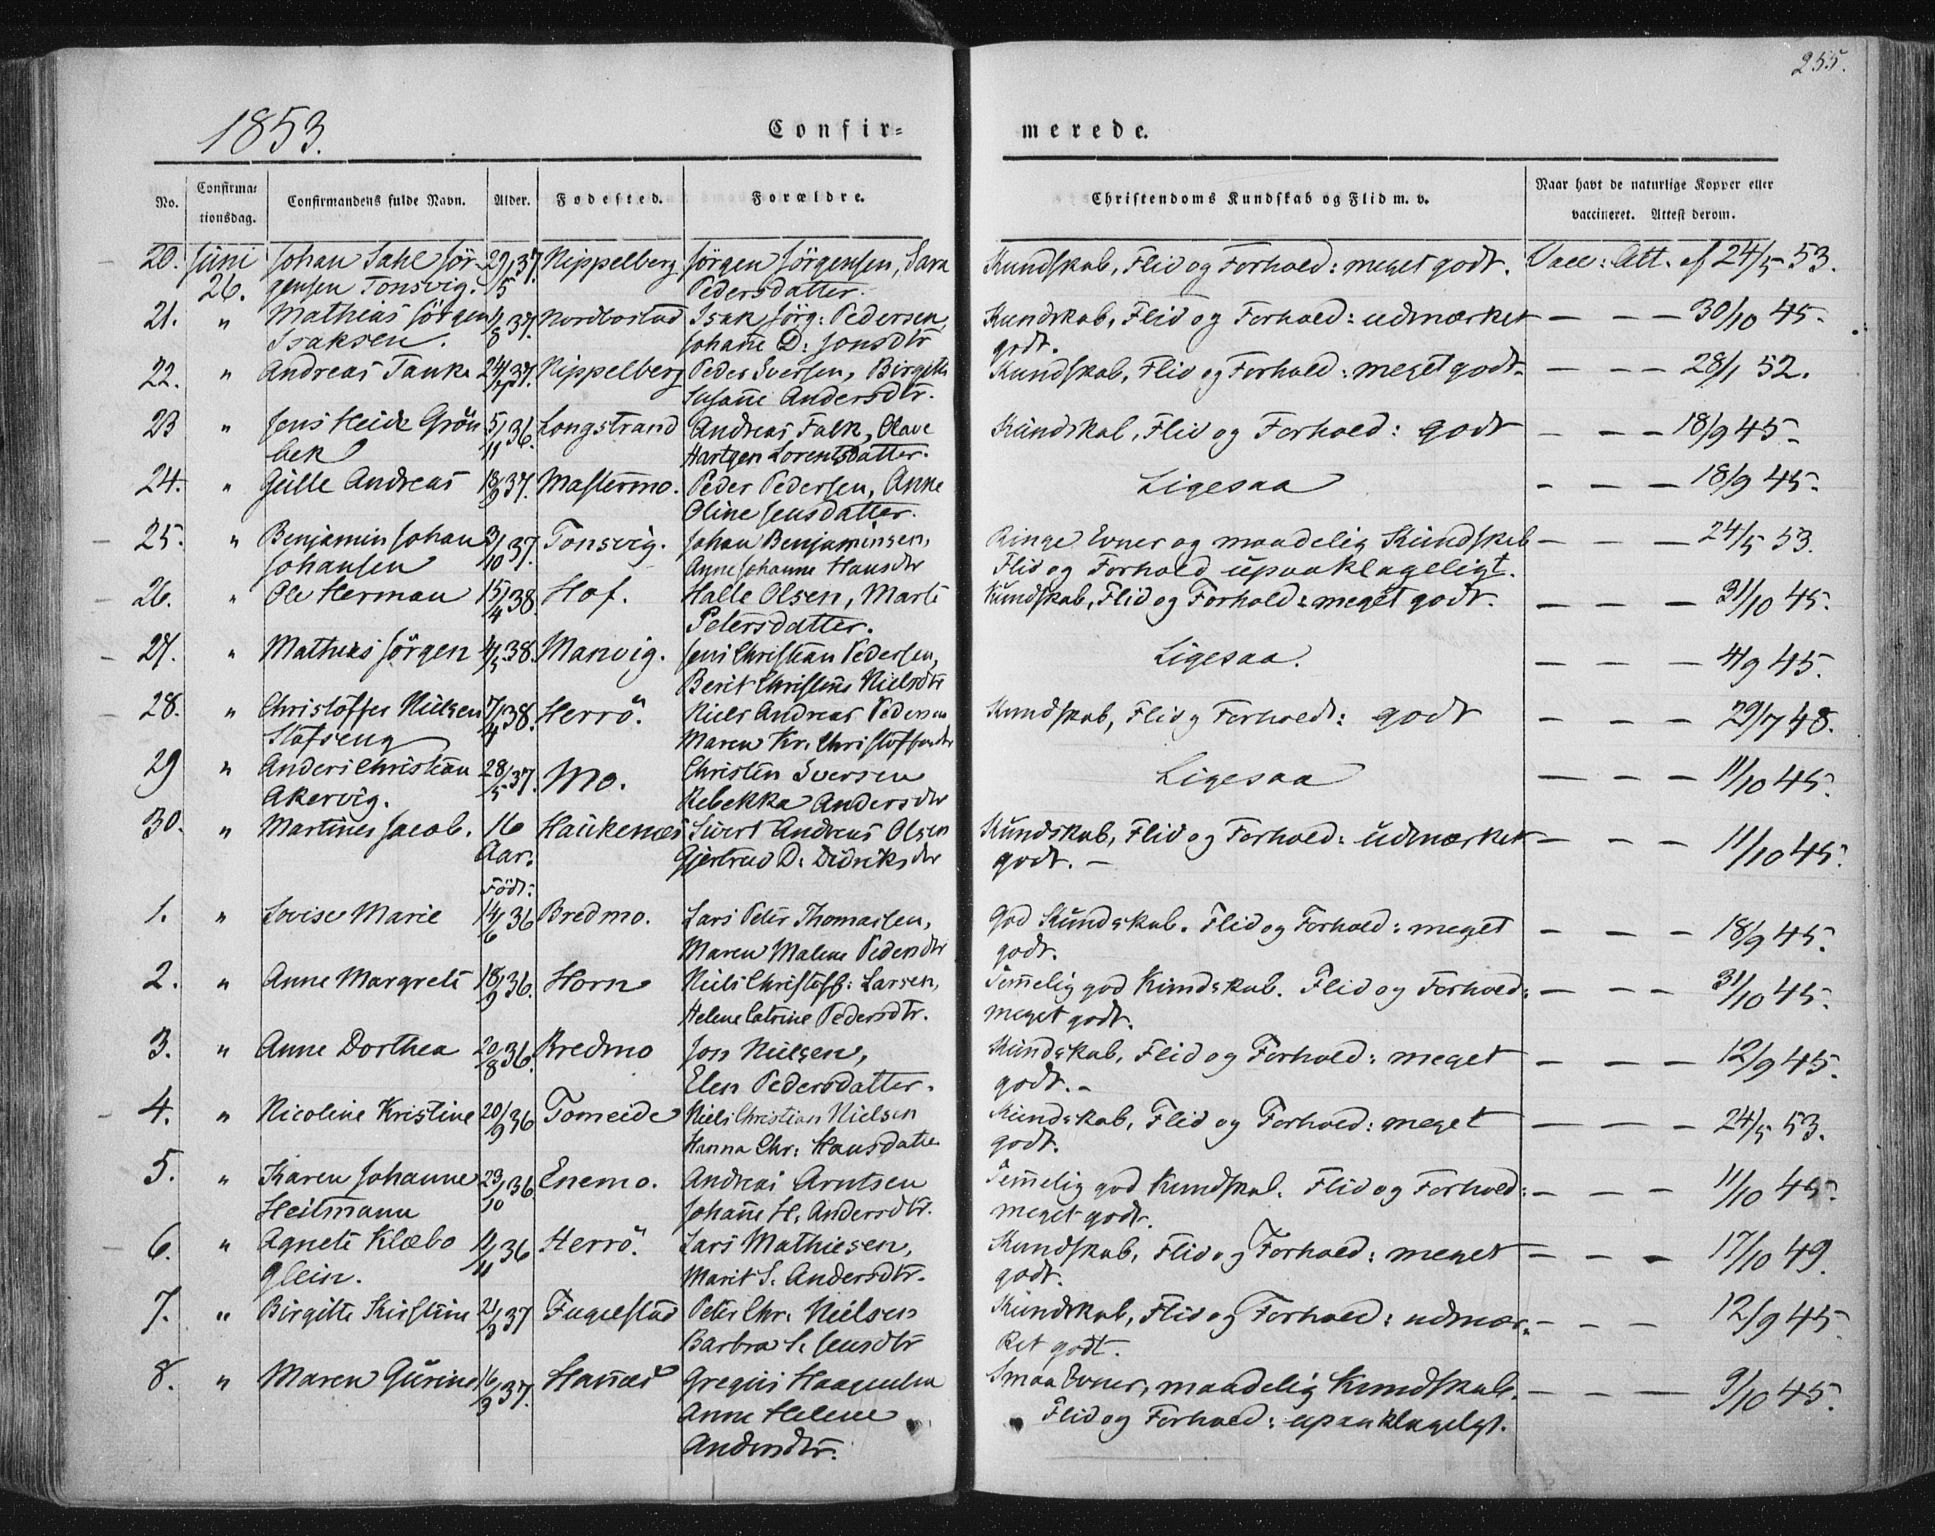 255.
1853.
Confir=
merede.
No.
Confirma=
tionsdag.
Confirmandens fulde Navn.
Alder.
Fødested.
Forældre.
Christendoms Kundskab og Flid m. v.
Naar havt de naturlige Kopper eller
vaccineret. Attest derom.
20. Juni Johan Sahl Jör- 29/5 37. Nippelberg Jörgen Jörgensen, Sara Kundskab, Flid og Forhold: meget godt. Vacc: Att. af 24/5 53.
26. gensen Tonsvig. Pedersdatter.
21. " Mathias Jörgen /8 37. Nordbostad Isak Jörg: Pedersen, Kundskab, Flid og Forhold: udmærket — — — 30/10 45.
Isaksen. Johañe D: Jonsdtr godt.
22. " Andreas Tanke 24/ 37. Nippelberg Peder Iversen, Birgitte Kundskab, Flid og Forhold: meget godt. — — — 28/1 52.
Susañe Andersdtr.
23 " Jens Heide Grön 5/11 36. Longstrand Andreas Falk, Olave Kundskab, Flid og Forhold: godt — — — 18/9 45.
bek Hartgen Lorentsdatter.
24. " Gülle Andreas 18/9 37. Mastermo. Peder Pedersen, Anne Ligesaa — — — 18/9 45.
Oline Jensdatter.
25. " Benjamin Johan 3/10 37. Tonsvig. Johan Benjaminsen, Ringe Evner og maadelig Kundskab — — — 24/5 53.
Johansen Anne Johanne Hansdtr Flid og Forhold upaaklageligt.
26. " Ole Herman 15/4 38. Hof. Halle Olsen, Marte Kundskab, Flid og Forhold: meget godt. — — — 31/10 45.
Petersdatter.
27. " Mathias Jörgen 4/5 38. Marvig. Jens Christian Pedersen, Ligesaa. — — — 4/9 45.
Berit Christine Nielsdtr
28. " Christoffer Nielsen 7/4 38. Herrö. Niels Andreas Pedersen Kundskab, Flid og Forhold: godt — — — 29/7 48.
Slofseng Maren Kr. Christoffersdtr
29 " Anders Christian 28/5 37. Mo. Christen Iversen Ligesaa — — — 11/10 45.
Akervig. Rebekka Andersdtr
30. " Martines Jacob. 16 Haukenæs Sivert Andreas Olsen Kundskab, Flid og Forhold: udmærket — — — 11/10 45.
Aar. Gjertrud D: Didriksdtr godt. —
Födt:
1. " Lovise Marie 14/6 36 Bredmo. Lars Peter Thomassen, God Kundskab. Flid og Forhold: meget — — — 18/9 45.
Maren Malene Pedersdtr godt.
2. " Anne Margrete 18/9 36. Horn Niels Christoff: Larsen, Temelig god Kundskab. Flid og Forhold: — — — 31/10 45.
Helene Catrine Pedersdtr. meget godt.
3. " Anne Dorthea 20/8 36. Bredmo Jon Nielsen, Kundskab, Flid og Forhold: meget — — — 12/9 45.
Elen Pedersdatter. godt. —
4. " Nicoline Kristine 20/9 36 Tomeide Niels Christian Nielsen Kundskab, Flid og Forhold: meget — — — 24/5 53.
Hanna Chr: Hansdatter godt.
5. " Karen Johanne 23/10 36 Enemo. Andreas Arntsen Temelig god Kundskab. Flid og Forhold: — — — 11/10 45.
Heitmann Johañe H. Andersdtr. meget godt.
6. " Agnete Klæbo /11 36 Herrö. Lars Mathiesen, Kundskab, Flid og Forhold: meget — — — 17/10 49.
Glein. Marit S. Andersdtr. godt.
7. " Birgitte Kirstine 21/3 37 Fugelstad Peter Chr. Nielsen Kundskab, Flid og Forhold: udmær= — — — 12/9 45.
Barbra S. Jensdtr ket godt.
8. " Maren Gurine 16/3 37. Hañæs Gregus Haagensen Smaa Evner, maadelig Kundskab. — — — 9/10 45.
Anne Helene Flid og Forhold: upaaklageligt.
Andersdtr.